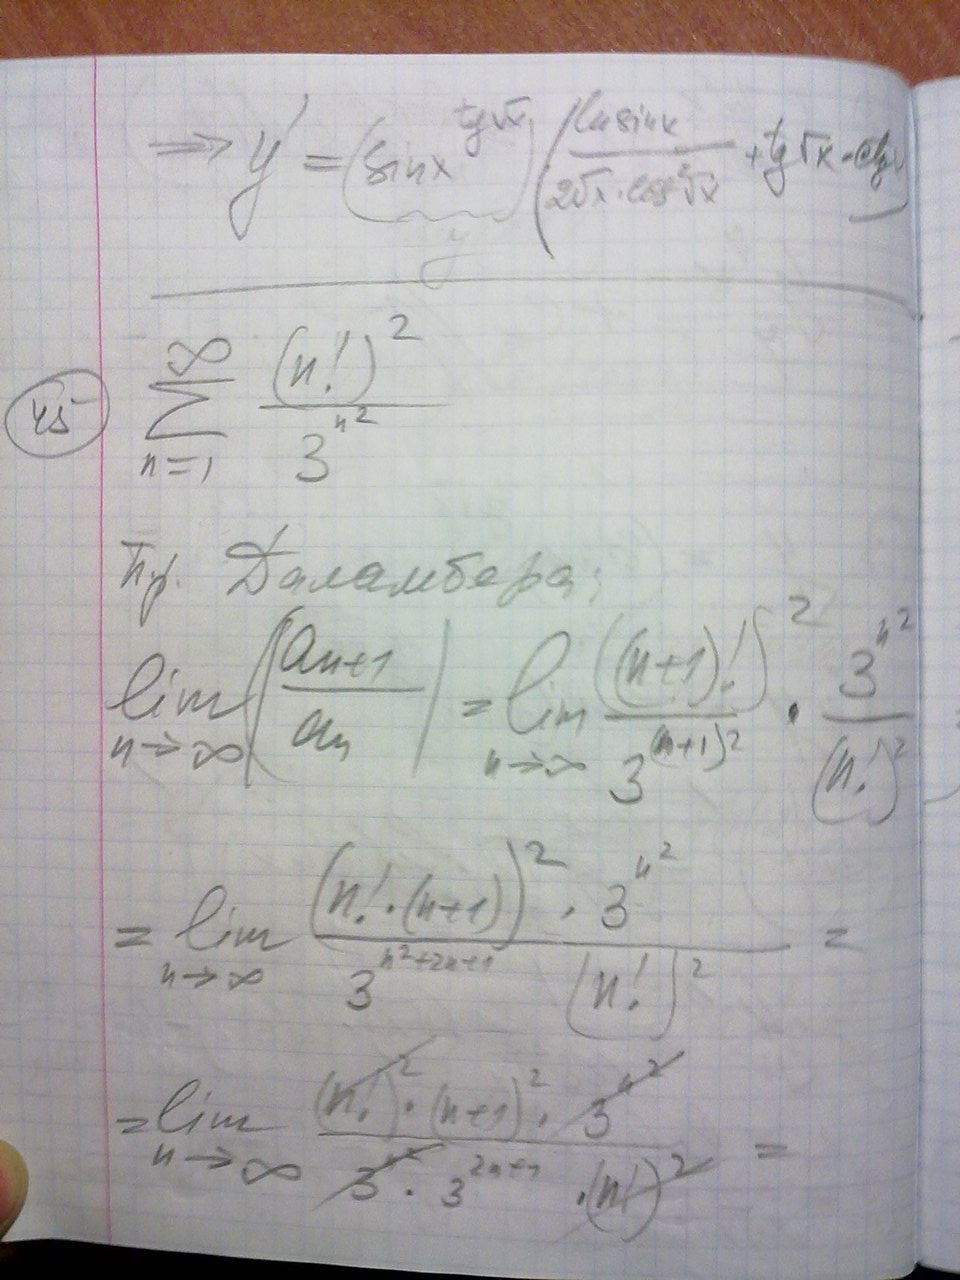 ⇒ y' = (sinx^{tg√x}) (\frac{ln sinx}{2√x · cos²√x} + tg√x · ctgx
y
45 \sum_{n=1}^{∞} \frac{(n!)^2}{3^{n^2}}
Пр. Даламбера:
lim_{n→∞} |\frac{a_{n+1}}{a_n}| = lim_{n→∞} \frac{((n+1)!)^2}{3^{(n+1)^2}} · \frac{3^{n^2}}{(n!)^2} =
= lim_{n→∞} \frac{(n! · (n+1))^2 · 3^{n^2}}{3^{n^2+2n+1} (n!)^2} =
= lim_{n→∞} \frac{(n!)^2 · (n+1)^2 · 3^{n^2}}{3^{n^2} · 3^{2n+1} · (n!)^2} =